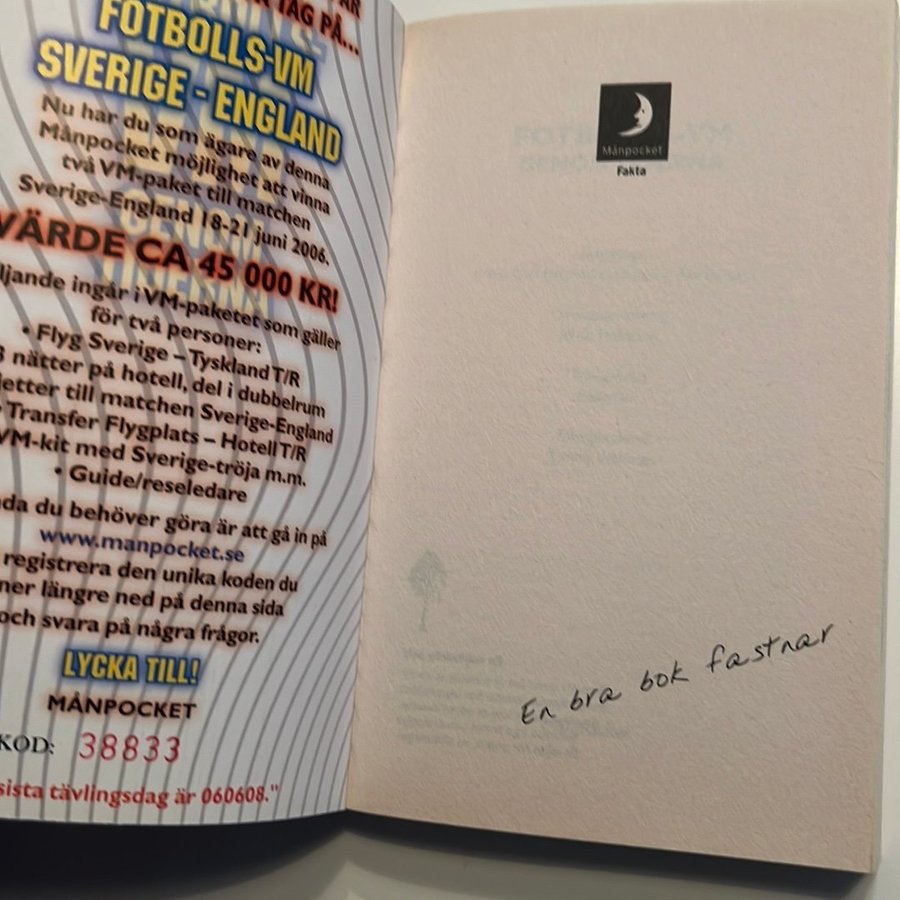 TAG PÅ...
FOTBOLLS-VM
SVERIGE - ENGLAND
Nu har du som ägare av denna
Månpocket möjlighet att vinna
två VM-paket till matchen
Sverige-England 18-21 juni 2006.
VÄRDE CA 45 000 KR!
ljande ingår i VM-paketet som gäller
för två personer:
• Flyg Sverige – Tyskland T/R
3 nätter på hotell, del i dubbelrum
jetter till matchen Sverige-England
Transfer Flygplats – Hotell T/R
VM-kit med Sverige-tröja m.m.
• Guide/reseledare
da du behöver göra är att gå in på
www.manpocket.se
registrera den unika koden du
ner längre ned på denna sida
och svara på några frågor.
LYCKA TILL!
MÅNPOCKET
KOD: 38833
sista tävlingsdag är 060608."
Månpocket
Fakta
En bra bok fastnar